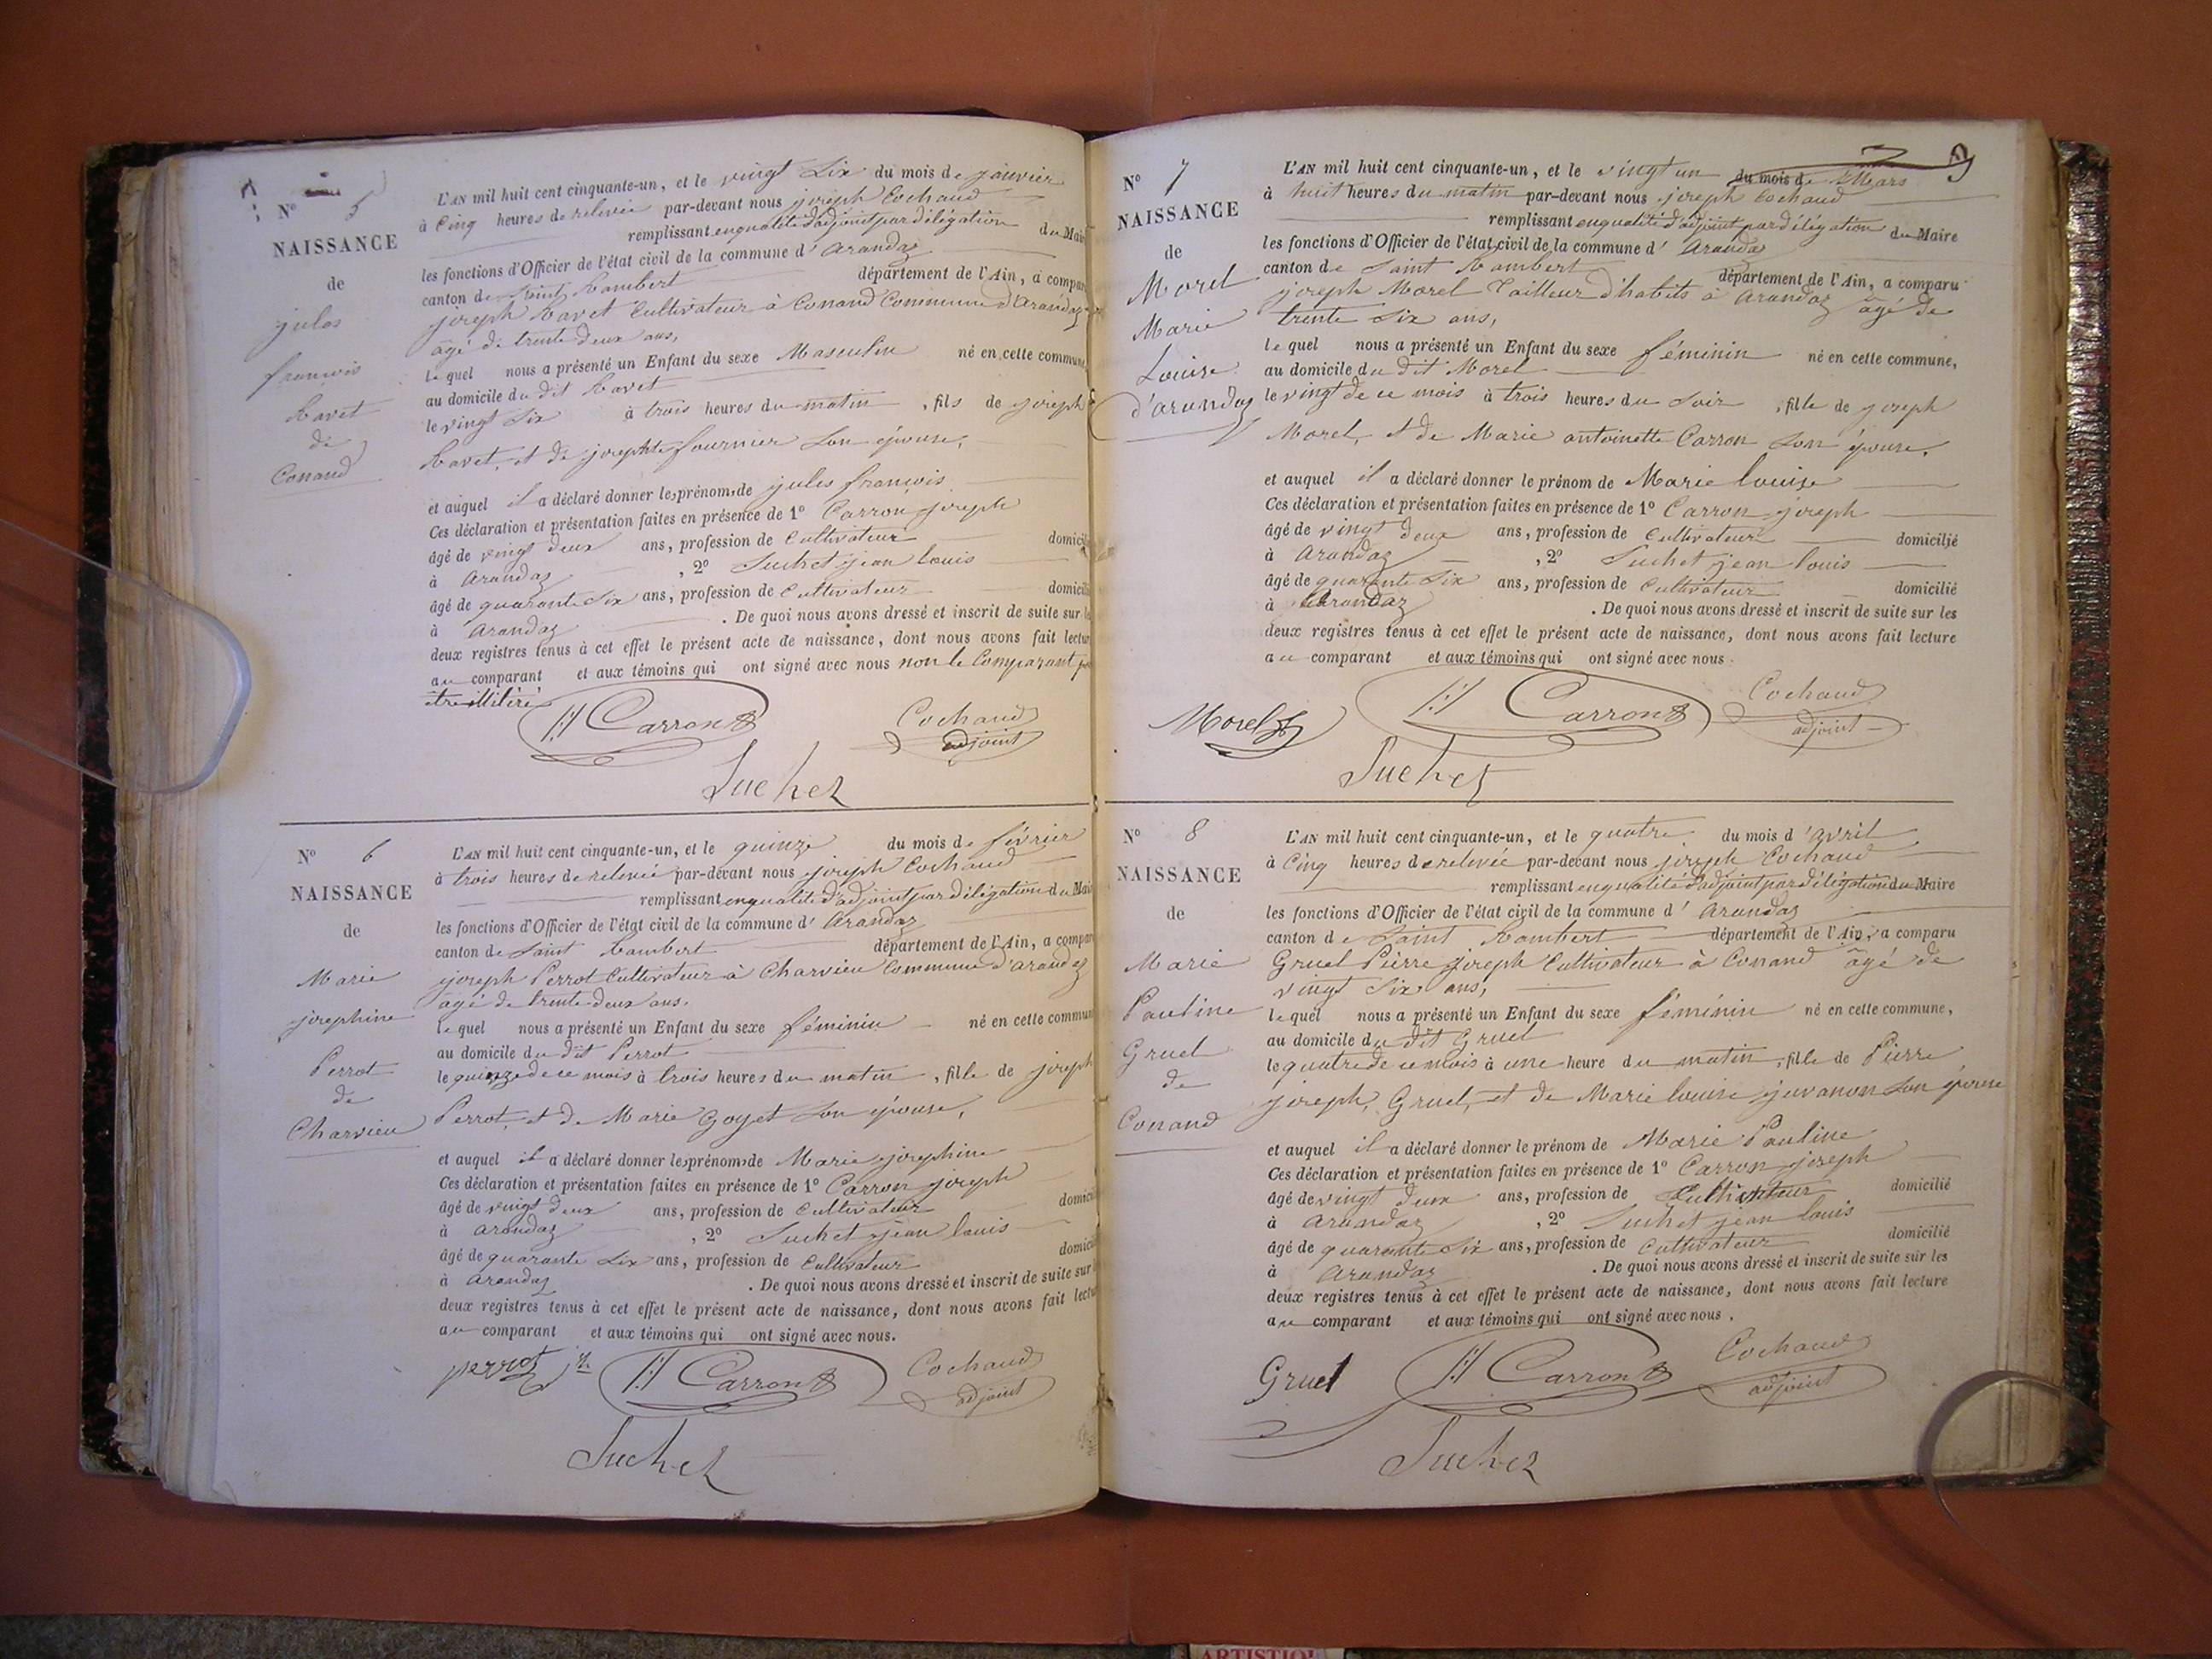 Nº 5
NAISSANCE
de
jules
françois
Ravet
de
Conand
L'AN mil huit cent cinquante-un, et le vingt Six du mois de janvier
à Cinq heures de relevée par-devant nous joseph Cochaud
remplissant en qualité d'adjoint par délégation du Mai
les fonctions d'Officier de l'état civil de la commune d' Arandaz
canton de Saint Rambert département de l'Ain, a compar
joseph Ravet Cultivateur à Conand Commune d'Arandaz
âgé de trente deux ans,
lequel nous a présenté un Enfant du sexe Masculin né en cette commune
au domicile du dit Ravet
le vingt Six à trois heures du matin, fils de joseph
Ravet, et de josephte fournier Son épouse,
et auquel il a déclaré donner les prénoms de jules françois
Ces déclaration et présentation faites en présence de 1º Carron joseph
âgé de vingt deux ans, profession de Cultivateur domicili
à Arandaz, 2º Suchet jean louis
âgé de quarante Six ans, profession de Cultivateur domicili
à Arandaz. De quoi nous avons dressé et inscrit de suite sur le
deux registres tenus à cet effet le présent acte de naissance, dont nous avons fait lectur
au comparant et aux témoins qui ont signé avec nous non le Comparant po
être illitéré
Carron Cochaud
adjoint
Suchet
Nº 6
NAISSANCE
de
Marie
josephine
Perrot
de
Charvieu
L'AN mil huit cent cinquante-un, et le quinze du mois de février
à trois heures de relevée par-devant nous joseph Cochaud
remplissant en qualité d'adjoint par délégation du Mai
les fonctions d'Officier de l'état civil de la commune d' Arandaz
canton de Saint Rambert département de l'Ain, a compar
joseph Perrot Cultivateur à Charvieu Commune d'Arandaz
âgé de trente deux ans.
lequel nous a présenté un Enfant du sexe féminin né en cette commun
au domicile du dit Perrot
le quinze de ce mois à trois heures du matin, fille de joseph
Perrot, et de Marie Goyet Son épouse,
et auquel il a déclaré donner les prénoms de Marie josephine
Ces déclaration et présentation faites en présence de 1º Carron joseph
âgé de vingt deux ans, profession de Cultivateur domicili
à Arandaz, 2º Suchet jean louis
âgé de quarante Six ans, profession de Cultivateur domicili
à Arandaz. De quoi nous avons dressé et inscrit de suite sur l
deux registres tenus à cet effet le présent acte de naissance, dont nous avons fait lectur
au comparant et aux témoins qui ont signé avec nous.
perrot jh Carron Cochaud
adjoint
Suchet
Nº 7
NAISSANCE
de
Morel
Marie
Louise
d'arandaz
L'AN mil huit cent cinquante-un, et le vingt un du mois de Mars
à huit heures du matin par-devant nous joseph Cochaud
remplissant en qualité d'adjoint par délégation du Maire
les fonctions d'Officier de l'état civil de la commune d' Arandaz
canton de Saint Rambert département de l'Ain, a comparu
joseph Morel Tailleur d'habits à Arandaz âgé de
trente Six ans,
lequel nous a présenté un Enfant du sexe féminin né en cette commune,
au domicile du dit Morel
le vingt de ce mois à trois heures du Soir, fille de joseph
Morel, et de Marie antoinette Carron Son épouse,
et auquel il a déclaré donner le prénom de Marie louise
Ces déclaration et présentation faites en présence de 1º Carron joseph
âgé de vingt deux ans, profession de Cultivateur domicilié
à Arandaz, 2º Suchet jean louis
âgé de quarante Six ans, profession de Cultivateur domicilié
à Arandaz. De quoi nous avons dressé et inscrit de suite sur les
deux registres tenus à cet effet le présent acte de naissance, dont nous avons fait lecture
au comparant et aux témoins qui ont signé avec nous.
Morel Carron Cochaud
adjoint
Suchet
Nº 8
NAISSANCE
de
Marie
Pauline
Gruel
de
Conand
L'AN mil huit cent cinquante-un, et le quatre du mois d'avril
à Cinq heures de relevée par-devant nous joseph Cochaud
remplissant en qualité d'adjoint par délégation du Maire
les fonctions d'Officier de l'état civil de la commune d' Arandaz
canton de Saint Rambert département de l'Ain, a comparu
Gruel Pierre joseph Cultivateur à Conand âgé de
vingt Six ans,
lequel nous a présenté un Enfant du sexe féminin né en cette commune,
au domicile du dit Gruel
le quatre de ce mois à une heure du matin, fille de Pierre
joseph, Gruel, et de Marie louise juvanon Son épouse
et auquel il a déclaré donner le prénom de Marie Pauline
Ces déclaration et présentation faites en présence de 1º Carron joseph
âgé de vingt deux ans, profession de Cultivateur domicilié
à Arandaz, 2º Suchet jean louis
âgé de quarante Six ans, profession de Cultivateur domicilié
à Arandaz. De quoi nous avons dressé et inscrit de suite sur les
deux registres tenus à cet effet le présent acte de naissance, dont nous avons fait lecture
au comparant et aux témoins qui ont signé avec nous.
Gruel Carron Cochaud
adjoint
Suchet